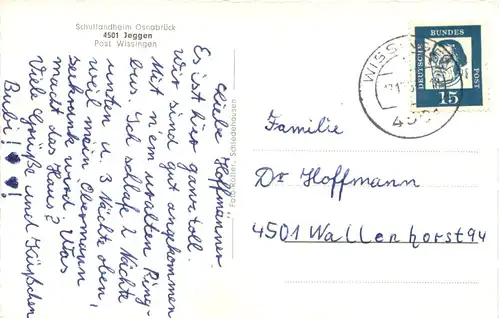 Schullandheim Osnabrück
4501 Jeggen
Post Wissingen
Liebe Hoffmänner
Es ist hier ganz toll.
Wir sind gut angekommen
Mit n'em uralten Ring-
bus. Ich schlaf 2 Nächte
unten u. 3 Nächte oben,
weil mein Obermann
seekrank word. Was
macht das Haus?
Viele Grüße und Küßchen
Bubi!
Foto-Kolter, Schledehausen
DEUTSCHE BUNDES POST
15
WISSINGEN
Familie
Dr Hoffmann
4501 Wallenhorst 94